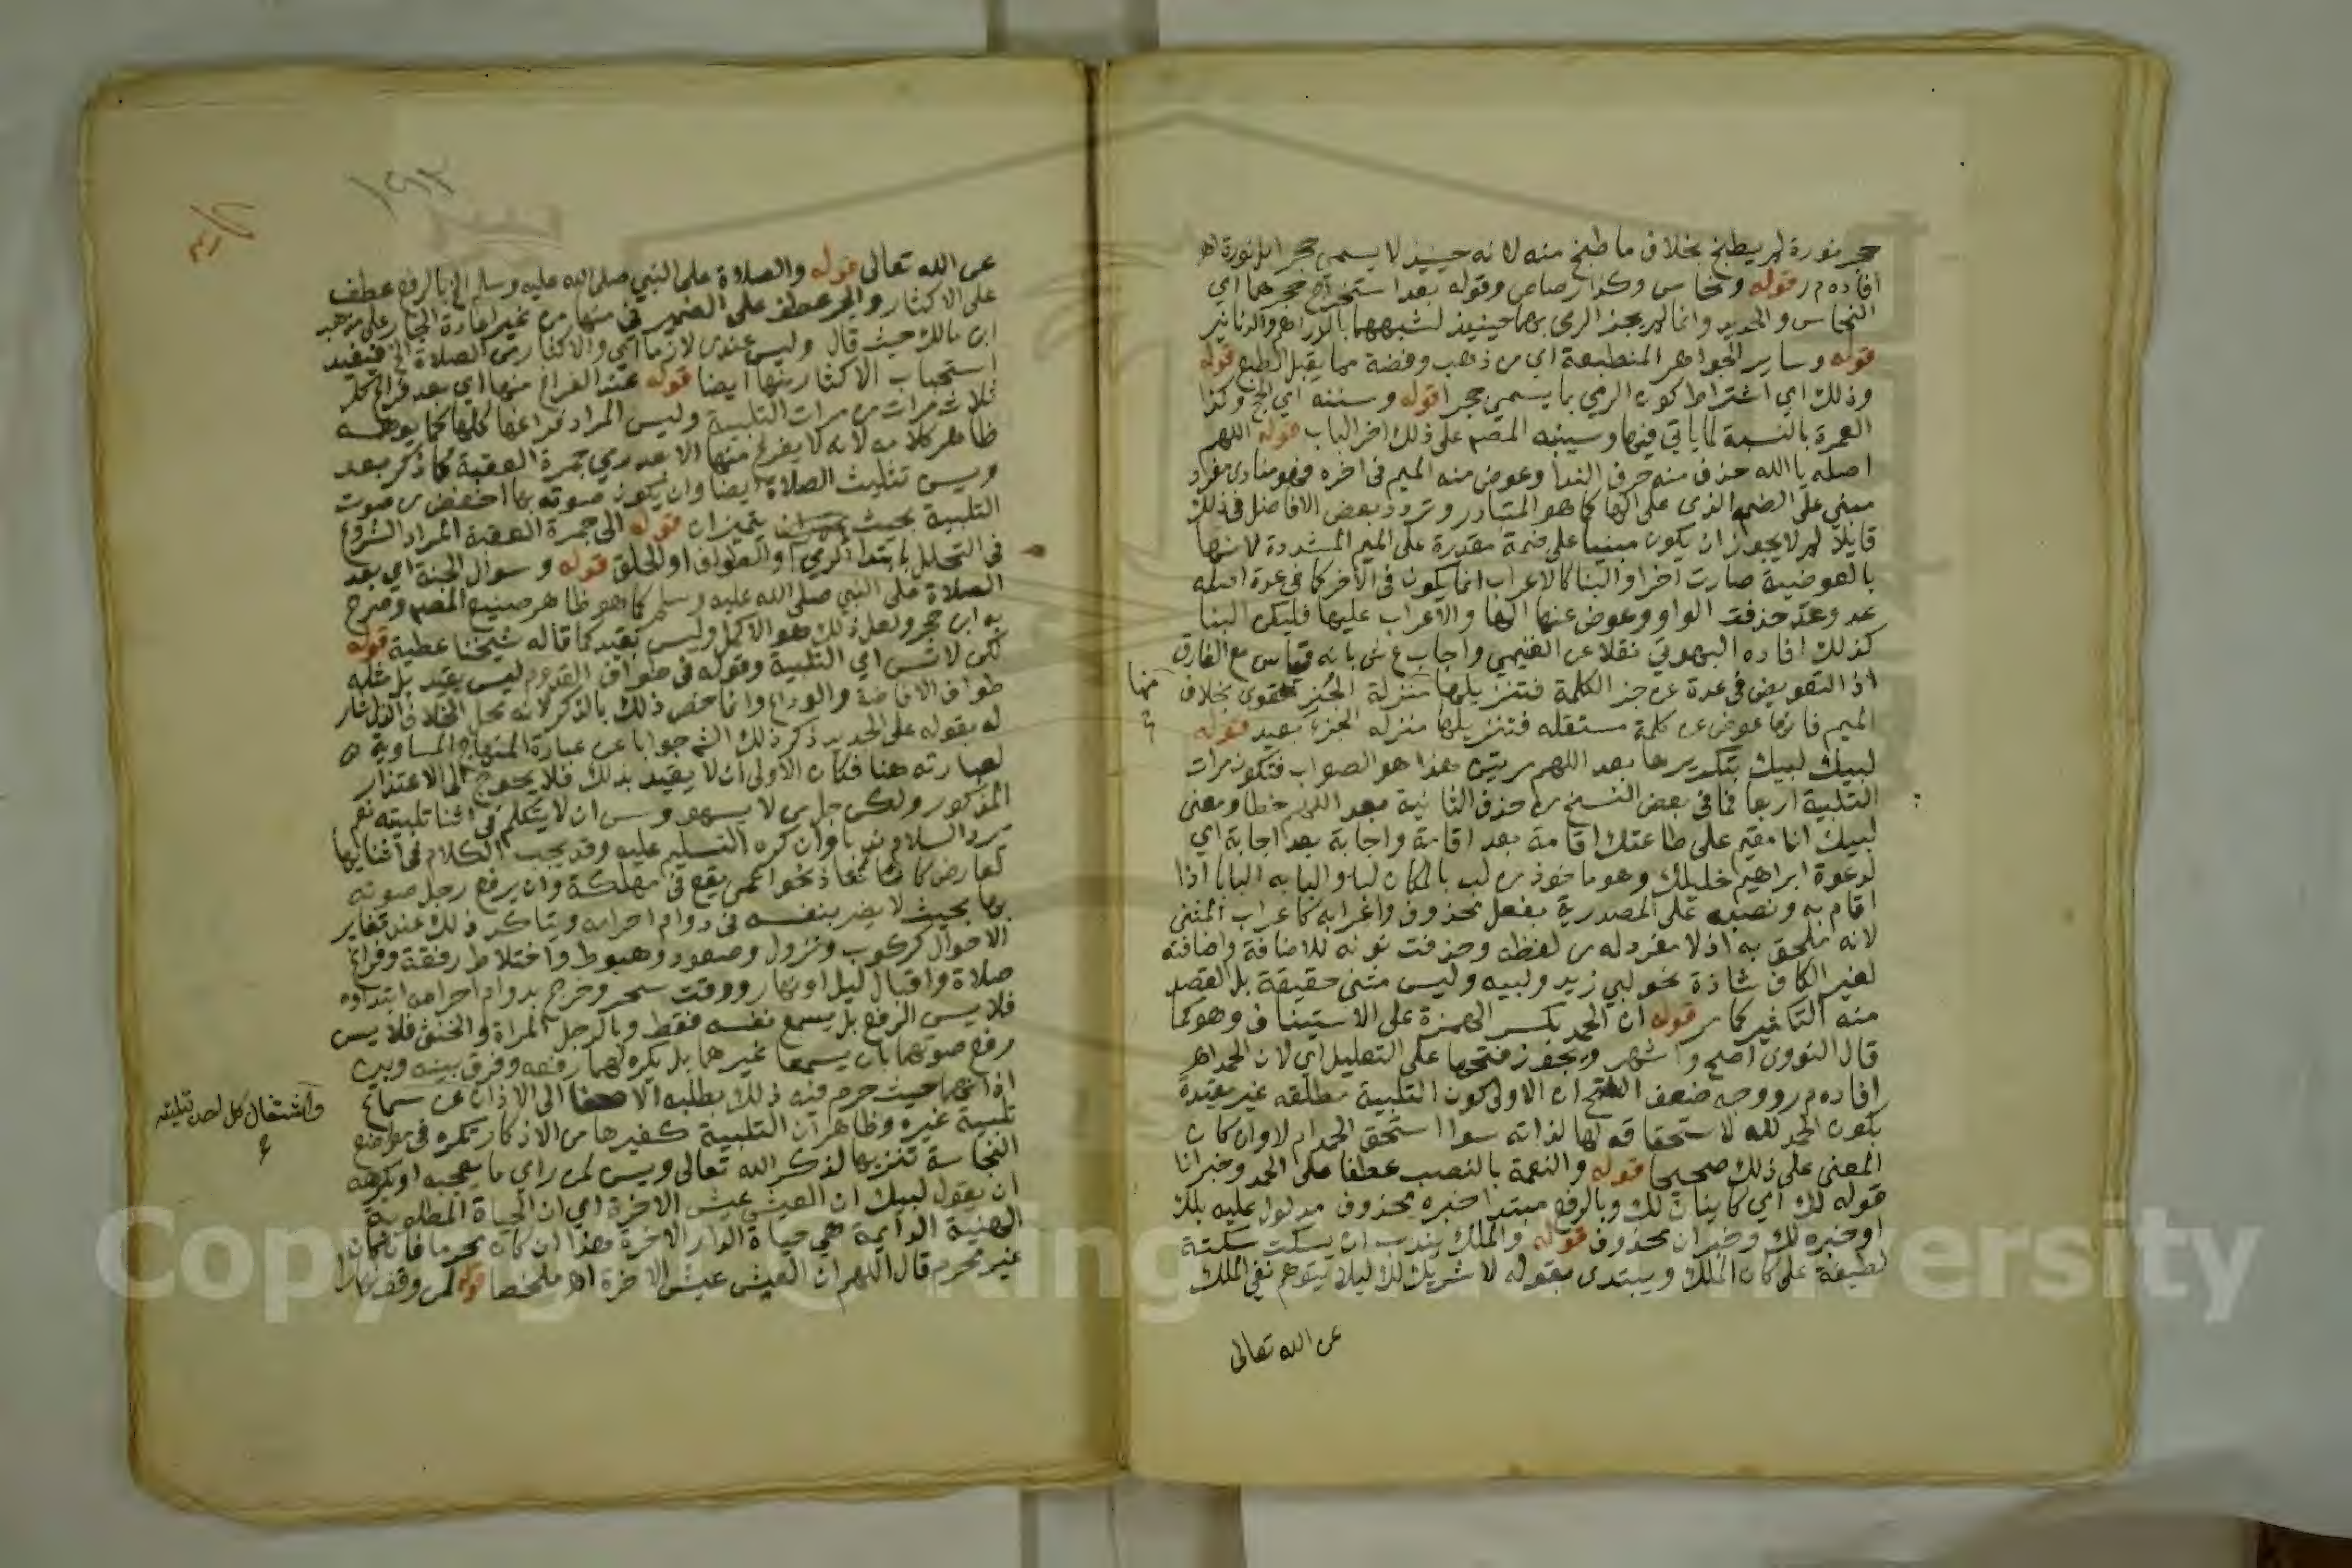 حجر نورة لم يطبخ بخلاف ما طبخ منه لانه حينيذ لا يسمى حجرا بل نورة اهـ
افاده م ر قوله ونحاس وكذا رصاص وقوله بعد استخراج حجرهما اي
النحاس والحديد وانما لم يجز الرمي بهما حينيذ لشبههما بالدراهم والدنانير
قوله وساير الجواهر المنطبعة اي من ذهب وفضة مما يقبل الطبع قوله
وذلك اي اشتراط كون الرمي بما يسمى حجرا قوله وسننه اي الحج وكذا
العمرة بالنسبة لما ياتي فيها وسينبه المصم على ذلك اخر الباب قوله اللهم
اصله يا الله حذف منه حرف الندا وعوض منه الميم في اخره فهو منادى مفرد
مبني على الضم الذي على الها كما هو المتبادر وتردد بعض الافاضل في ذلك
قايلا لم لا يجوز ان يكون مبنيا على ضمة مقدرة على الميم المشددة لانها
بالعوضية صارت اخرا والبنا كالاعراب انما يكون في الاخر كما في عدة اصله
عد وعد حذفت الواو وعوض عنها الها والاعراب عليها فليكن البنا
كذلك افاده البهوتي نقلا عن الغنيمي واجاب ع ش بانه قياس مع الفارق
اذ التعويض في عدة عن جز الكلمة فتنزيلها منزلة الجز قوي بخلاف
منها
الميم فانها عوض عن كلمة مستقله فتنزيلها منزله الجزء بعيد قوله
لبيك لبيك بتكريرها بعد اللهم مرتين هذا هو الصواب فتكون مرات
التلبية اربعا فما في بعض النسخ من حذف الثانية بعد اللهم خطا ومعنى
لبيك انا مقيم على طاعتك اقامة بعد اقامة واجابة بعد اجابة اي
لدعوة ابراهيم خليلك وهو ماخوذ من لب بالمكان لبا والب به البابا اذا
اقام به ونصبه على المصدرية بفعل محذوف واعرابه كاعراب المثنى
لانه ملحق به اذ لا مفرد له من لفظه وحذفت نونه للاضافة واضافته
لغير الكاف شاذة نحو لبي زيد ولبيه وليس مثنى حقيقة بل القصد
منه التكثير كما مر قوله ان الحمد بكسر الهمزة على الاستيناف وهو كما
قال النووي اصح واشهر ويجوز فتحها على التعليل اي لان الحمد اهـ
افاده م ر ووجه ضعف الفتح ان الاولى كون التلبية مطلقه غير مقيدة
بكون الحمد لله لاستحقاقه لها لذاته سوا استحق الحمد ام لا وان كان
المعنى على ذلك صحيحا قوله والنعمة بالنصب عطفا على الحمد وخبر انا
قوله لك اي كاينان لك وبالرفع مبتدا خبره محذوف مدلول عليه بلك
او خبره لك وخبر ان محذوف قوله والملك يندب ان يسكت سكتة
لطيفة على كاف الملك ويبتدى بقوله لا شريك لك ليلا يتوهم نفي الملك
عن الله تعالى
عن الله تعالى قوله والصلاة على النبي صلى الله عليه وسلم الخ بالرفع عطف
على الاكثار والجر عطف على الضمير في منها من غير اعادة الجار على مذهب
ابن مالك حيث قال وليس عندي لازما اي والاكثار من الصلاة الخ فيفيد
استحباب الاكثار منها ايضا قوله عند الفراغ منها اي بعد فراغ كل
ثلاث مرات من مرات التلبية وليس المراد فراغها كلها كما يوهمه
ظاهر كلامه لانه لا يفرغ منها الا عند رمي جمرة العقبة كما ذكر بعد
ويسن تثليث الصلاة ايضا وان يكون صوته بها اخفض من صوت
التلبية بحيث يتميزان قوله الى جمرة العقبة المراد الشروع
في التحلل بابتدا الرمي او الطواف او الحلق قوله وسوال الجنة اي بعد
الصلاة على النبي صلى الله عليه وسلم كما هو ظاهر صنيع المصم وصرح
به ابن حجر ولعل ذلك هو الاكمل وليس بقيد كما قاله شيخنا عطية قوله
لكن لا تسن اي التلبية وقوله في طواف القدوم ليس بقيد بل مثله
طواف الافاضة والوداع وانما خص ذلك بالذكر لانه محل الخلاف الذي اشار
له بقوله على الجديد ذكر ذلك الشم جوابا عن عبارة المنهاج المساوية
لعبارته هنا فكان الاولى ان لا يقيد بذلك فلا يحوج الى الاعتذار
المذكور ولكن جل من لا يسهو وسن ان لا يتكلم في اثنا تلبيته نعم
يرد السلام ندبا وان كره التسليم عليه وقد يجب الكلام في اثنايها
لعارض كانقاذ نحو اعمى يقع في مهلكة وان يرفع رجل صوته
بها بحيث لا يضر بنفسه في دوام احرامه ويتاكد ذلك عند تغاير
الاحوال كركوب ونزول وصعود وهبوط واختلاط رفقة وفراغ
صلاة واقبال ليل او نهار ووقت سحر وخرج بدوام احرامه ابتداوه
فلا يسن الرفع بل يسمع نفسه فقط وبالرجل المراة والخنثى فلا يسن
رفع صوتهما بان يسمعا غيرهما بل يكره لهما رفعه وفرق بينه وبين
اذانهما حيث حرم فيه ذلك بطلبه الاصغا الى الاذان عن سماع
واشتغال كل احد بتلبيته
تلبية غيره وظاهر ان التلبية كغيرها من الاذكار تكره في مواضع
النجاسة تنزيها لذكر الله تعالى ويسن لمن راى ما يعجبه او يكرهه
ان يقول لبيك ان العيش عيش الاخرة اي ان الحياة المطلوبة
الهنية الدايمة هي حياة الدار الاخرة هذا ان كان محرما فان كان
غير محرم قال اللهم ان العيش عيش الاخرة اهـ ملخصا قوله لمن وقف نهارا
Copyright © King Saud University